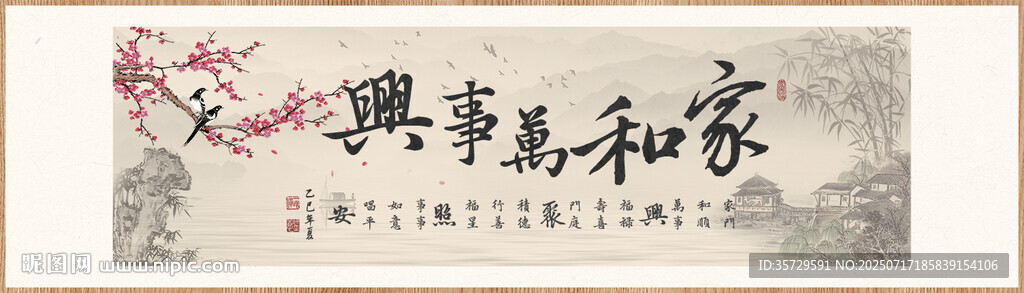 家和萬事興
家門和順萬事興
福祿壽喜門庭聚
積德行善福星照
事事如意唱平安
乙巳年夏
昵图网 www.nipic.com
ID:35729591 NO:20250717185839154106